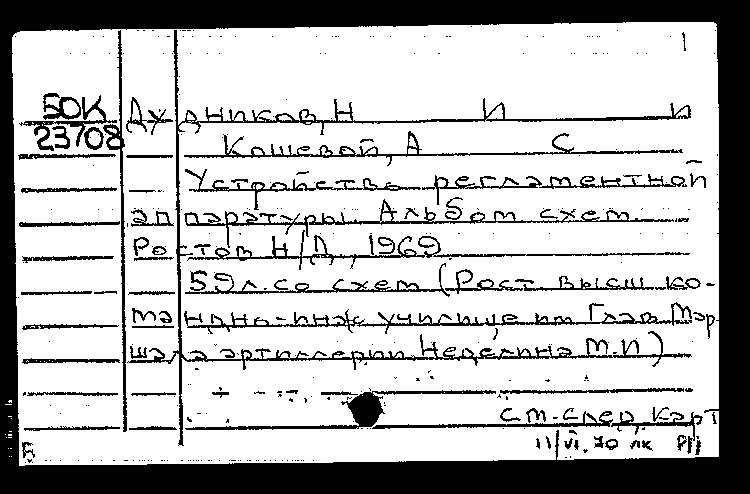 1
БОК Дудников, Н И и
23708 Кошевой, А С
Устройство регламентной
аппаратуры. Альбом схем.
Ростов н/Д, 1969
59л. со схем (Рост. высш ко-
мандно-инж училище им Глав. Мар-
шала артиллерии Неделина М.И)
см. след карт
11/VI.70 лк
Б